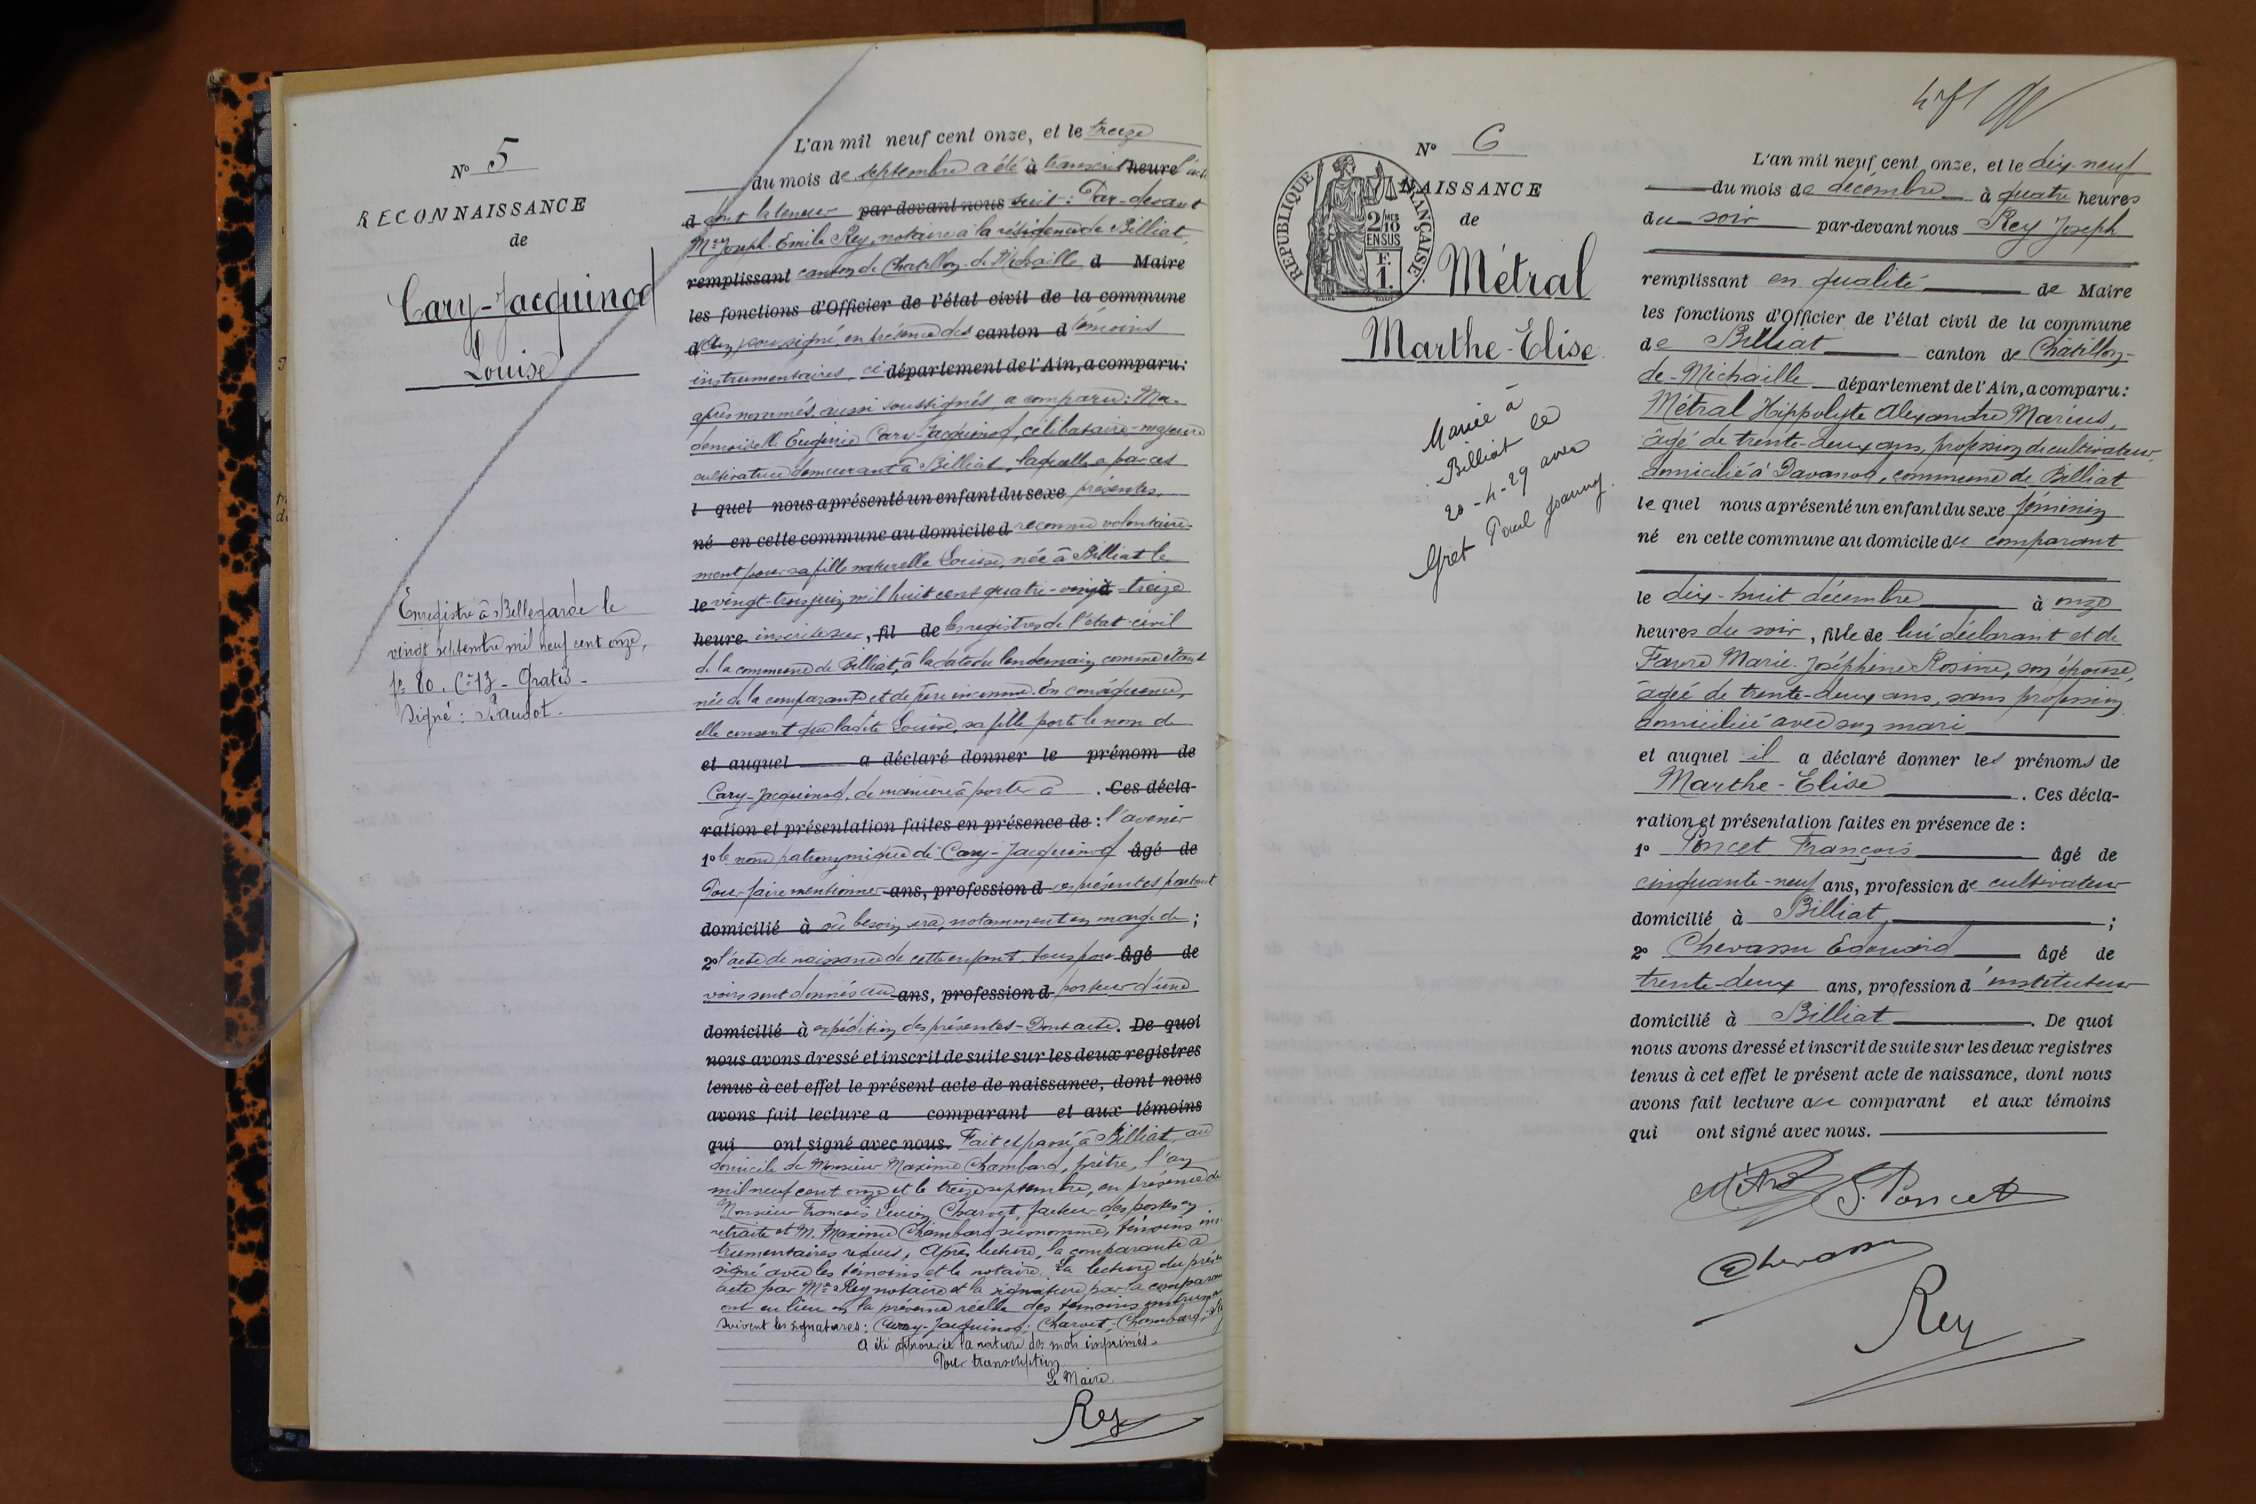 N° 5
RECONNAISSANCE
de
Cary-Jacquinod
Louise
Enregistré à Bellegarde le
vingt septembre mil neuf cent onze,
f° 80. C° 13 - Gratis -
Signé :
L'an mil neuf cent onze, et le treize
du mois de septembre a été à transcrit heure l'acte
d dont la teneur par devant nous suit : Par-devant
Me Joseph-Emile Rey, notaire à la résidence de Billiat,
remplissant canton de Chatillon-de-Michaille d Maire
les fonctions d'Officier de l'état civil de la commune
d Ain, soussigné, en présence des canton d témoins
instrumentaires, ci- département de l'Ain, a comparu :
après nommés, aussi soussignés, a comparu : Ma-
demoiselle Eugénie Cary-Jacquinod, célibataire-majeure
cultivatrice demeurant à Billiat, laquelle a par ces
l quel nous a présenté un enfant du sexe présentes,
né en cette commune au domicile d reconnu volontaire-
ment pour sa fille naturelle Louise, née à Billiat le
le vingt-trois juin mil huit cent quatre-vingt à -treize
heure inscrite sur , fil de les registres de l'état-civil
de la commune de Billiat, à la date du lendemain comme étant
née de la comparante et de père inconnu. En conséquence,
elle consent que ladite Louise, sa fille porte le nom de
et auquel a déclaré donner le prénom de
Cary-Jacquinod, de manière à porter à . Ces décla-
ration et présentation faites en présence de : l'avenir
1° le nom patronymique de Cary-Jacquinod âgé de
Pour faire mentionner ans, profession d ces présentes partout
domicilié à où besoin sera, notamment en marge de ;
2° l'acte de naissance de cette enfant, tous pou- âgé de
voirs sont donnés au ans, profession d porteur d'une
domicilié à expédition des présentes - Dont acte. De quoi
nous avons dressé et inscrit de suite sur les deux registres
tenus à cet effet le présent acte de naissance, dont nous
avons fait lecture a comparant et aux témoins
qui ont signé avec nous. Fait et passé à Billiat, au
domicile de Monsieur Maxime Chambard, prêtre, l'an
mil neuf cent onze et le treize septembre, en présence de
Monsieur François Lucien Charvet, facteur des postes en
retraite et M. Maxime Chambard susnommé, témoins ins-
trumentaires requis. Après lecture, la comparante a
signé avec les témoins et le notaire. La lecture du présent
acte par Me Rey notaire et la signature par la comparante
ont eu lieu en la présence réelle des témoins instrumen
Suivent les signatures : Cary-Jacquinod, Charvet, Chambard,
A été approuvée la rature des mots imprimés.
Pour transcription
Le Maire
Rey
N° 6
NAISSANCE
de
REPUBLIQUE FRANÇAISE.
2/10 MES
EN SUS
F.
1.
Métral
Marthe-Elise
Mariée à
Billiat le
20-4-29 avec
Gret Paul Joanny.
L'an mil neuf cent onze, et le dix-neuf
du mois de décembre à quatre heures
du soir par-devant nous Rey Joseph
remplissant en qualité de Maire
les fonctions d'Officier de l'état civil de la commune
de Billiat canton de Châtillon-
de-Michaille département de l'Ain, a comparu :
Métral Hippolyte Alexandre Marius,
âgé de trente-deux ans, profession de cultivateur,
domicilié à Davanod, commune de Billiat
le quel nous a présenté un enfant du sexe féminin
né en cette commune au domicile du comparant
le dix-huit décembre à onze
heures du soir, fille de lui déclarant et de
Favre Marie-Joséphine Rosine, son épouse,
âgée de trente-deux ans, sans profession
domiciliée avec son mari
et auquel il a déclaré donner les prénoms de
Marthe-Elise . Ces décla-
ration et présentation faites en présence de :
1° Poncet François âgé de
cinquante-neuf ans, profession de cultivateur
domicilié à Billiat, ;
2° Chevassu Edouard âgé de
trente-deux ans, profession d'instituteur
domicilié à Billiat . De quoi
nous avons dressé et inscrit de suite sur les deux registres
tenus à cet effet le présent acte de naissance, dont nous
avons fait lecture au comparant et aux témoins
qui ont signé avec nous.
F. Poncet
Chevassu
Rey